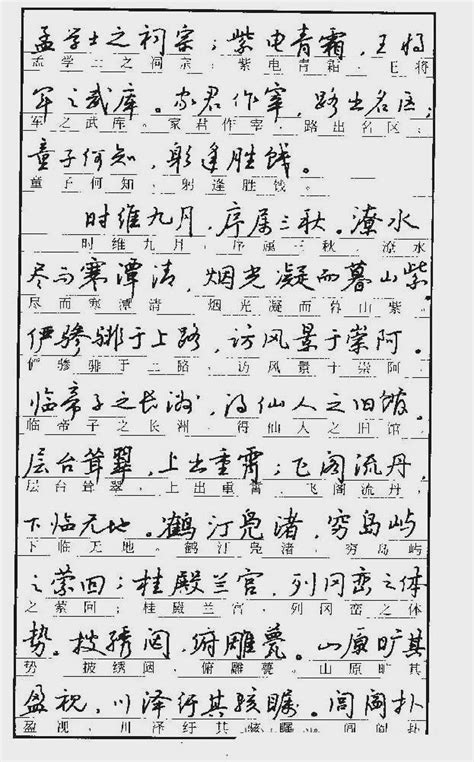 孟学士之词宗；紫电青霜，王将
孟学士之词宗；紫电青霜，王将
军之武库。家君作宰，路出名区；
军之武库。家君作宰，路出名区；
童子何知，躬逢胜饯。
童子何知，躬逢胜饯。
时维九月，序属三秋。潦水
时维九月，序属三秋，潦水
尽而寒潭清，烟光凝而暮山紫。
尽而寒潭清，烟光凝而暮山紫。
俨骖騑于上路，访风景于崇阿。
俨骖騑于上路，访风景于崇阿。
临帝子之长洲，得仙人之旧馆。
临帝子之长洲，得仙人之旧馆。
层台耸翠，上出重霄；飞阁流丹，
层台耸翠，上出重霄；飞阁流丹，
下临无地。鹤汀凫渚，穷岛屿
下临无地。鹤汀凫渚，穷岛屿
之萦回；桂殿兰宫，列冈峦之体
之萦回；桂殿兰宫，列冈峦之体
势。披绣闼，俯雕甍。山原旷其
势。披绣闼，俯雕甍。山原旷其
盈视，川泽纡其骇瞩。闾阎扑
盈视，川泽纡其骇瞩。闾阎扑